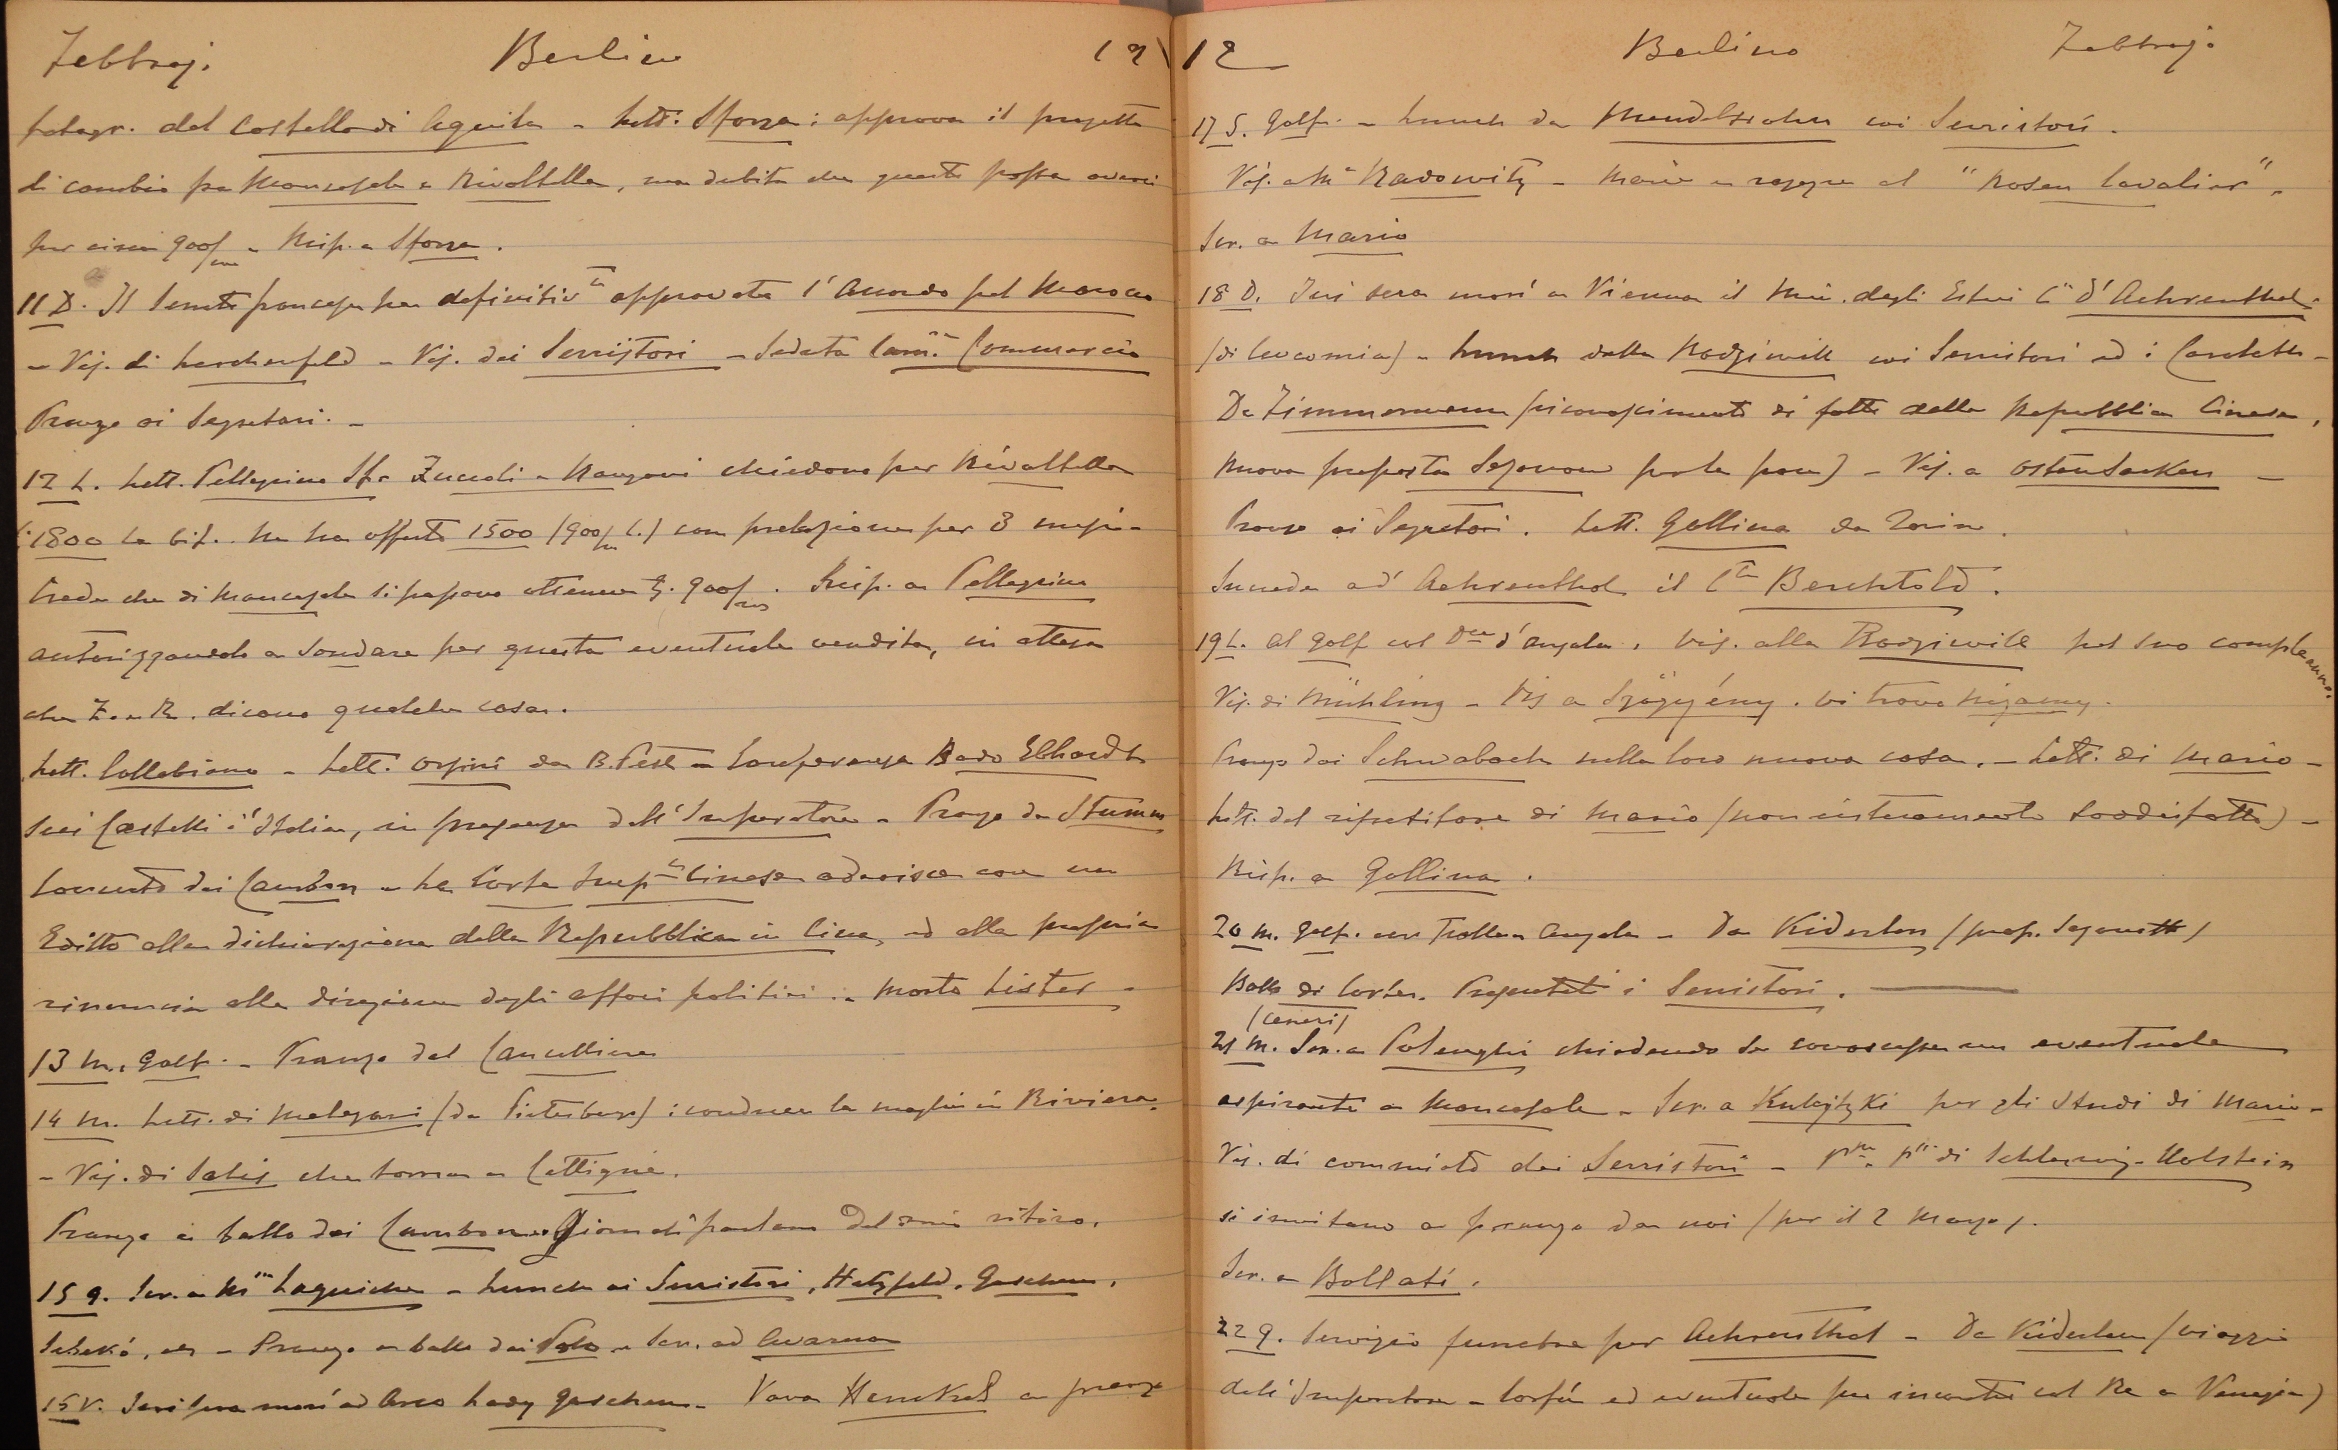 Febbrajo Berlino 19
fotogr. del Castello di Aquila - Lett. Sforza: approva il progetto
di cambio fra Moncesole e Rivoltella, ma dubita che questa possa aversi
per circa 900/m - Risp. a Sforza.
11 D. Il Senato francese ha definitiv.te approvato l'Accordo pel Marocco
- Vis. di Lerchenfeld - Vis. dei Serristori - Seduta Cam.ra Commercio
Pranzo ai Segretari. -
12 L. Lett. Pellegrino Sf. Zuccoli e Rangoni chiedono per Rivoltella
1800 la bif. Ne ha offerto 1500 (900/m L.) con prelazione per 3 mesi -
Crede che di Moncesole si possano ottenere 900/m. Risp. a Pellegrino
autorizzandolo a sondare per questa eventuale vendita, in attesa
che Z. e R. dicano qualche cosa.
Lett. Collobiano - Lett. Orsini da B.Pest - Conferenza Bodo Ebhardt
sui Castelli d'Italia, in presenza dell'Imperatore - Pranzo da Stumm
Concerto dai Cambon - La Corte Imp.le Cinese aderisce con un
Editto alla dichiarazione della Repubblica in Cina, ed alla propria
rinuncia alla direzione degli affari politici. - Morto Lister -
13 M. Golf. - Pranzo dal Cancelliere
14 M. Lett. di Melegari (da Pietroburgo): conduce la moglie in Riviera.
- Vis. di Salis che torna a Cettigne.
Pranzo e ballo dai Cambon. Giornali parlano del mio ritiro.
15 G. Scr. a M.me Laguiche - Lunch ai Serristori, Hatzfeld, Goschen,
Szebeko, ecc - Pranzo e ballo dai Polo - Scr. ad Avarna
16 V. Ieri sera morì ad Arco Lady Goschen - Vava Henckel a pranzo
12 Berlino Febbrajo
17 S. Golf. - Lunch da Mendelssohn coi Serristori.
Vis. a M.e Radowitz - Marie e ragazze al "Rosen Cavalier".
Scr. a Mario
18 D. Ieri sera morì a Vienna il Min. degli Esteri C.te d'Aehrenthal
(di leucemia) - Lunch dalla Radziwill coi Serristori ed i Carletti -
Da Zimmermann (riconoscimento di fatto della Repubblica Cinese,
nuova proposta Sazonow per la pace) - Vis. a Osten Sacken -
Pranzo ai Segretari. Lett. Gallina da Torino.
Succede ad Aehrenthal il C.te Berchtold.
19 L. Al golf col D.ca d'Angelo. Vis. alla Radziwill pel suo compleanno.
Vis. di Mühling - Vis a Szögyény. Vi trovo Nizamy.
Pranzo dai Schwabach nella loro nuova casa. - Lett. di Mario -
Lett. del ripetitore di Mario (non interamente soddisfatto) -
Risp. a Gallina.
20 M. Golf. Da Kiderlen (prop. Sazonoff)
Ballo di Corte. Presentati i Serristori.
(Ceneri)
21 M. Scr. a Polenghi chiedendo se conoscesse un eventuale
aspirante a Moncesole - Scr. a Kulczycki per gli studi di Mario -
Vis. di commiato dei Serristori - P.pe P.ssa di Schleswig-Holstein
si invitano a pranzo da noi (per il 2 Marzo).
Scr. a Bollati.
22 G. Servizio funebre per Aehrenthal - Da Kiderlen (viaggio
dell'Imperatore a Corfù ed eventuale suo incontro col Re a Venezia)